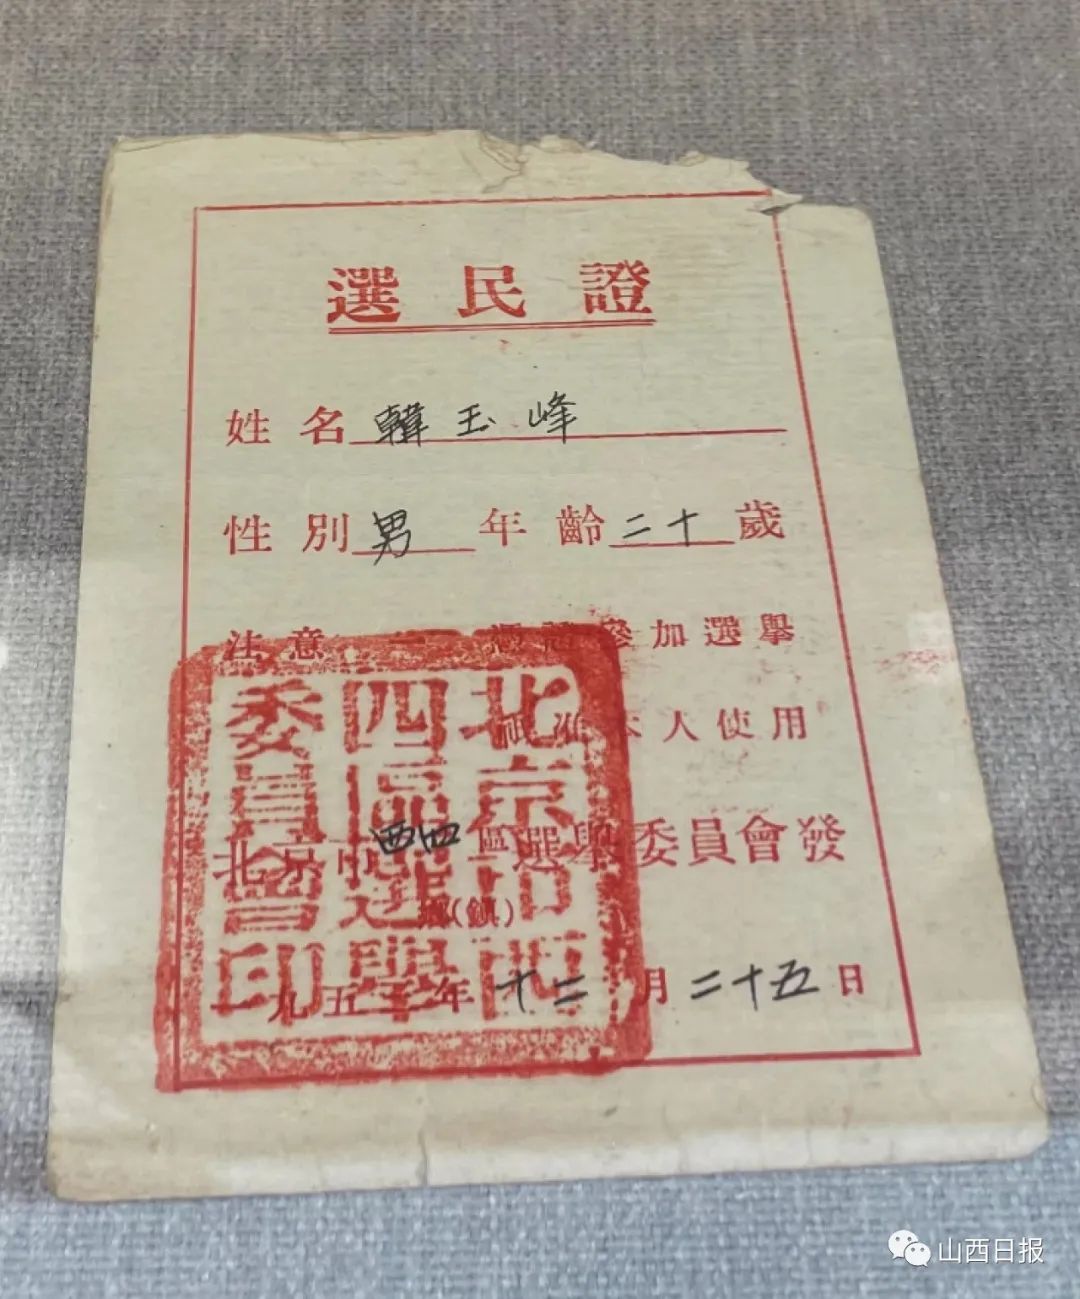 選民證
姓名 韓玉峰
性別 男 年齡 二十 歲
注意 一 憑證參加選舉
祇准本人使用
北京市西四區選舉委員會發
(鎮)
九五三年十二月二十五日
北京市西
四區選舉
委員會印
山西日报